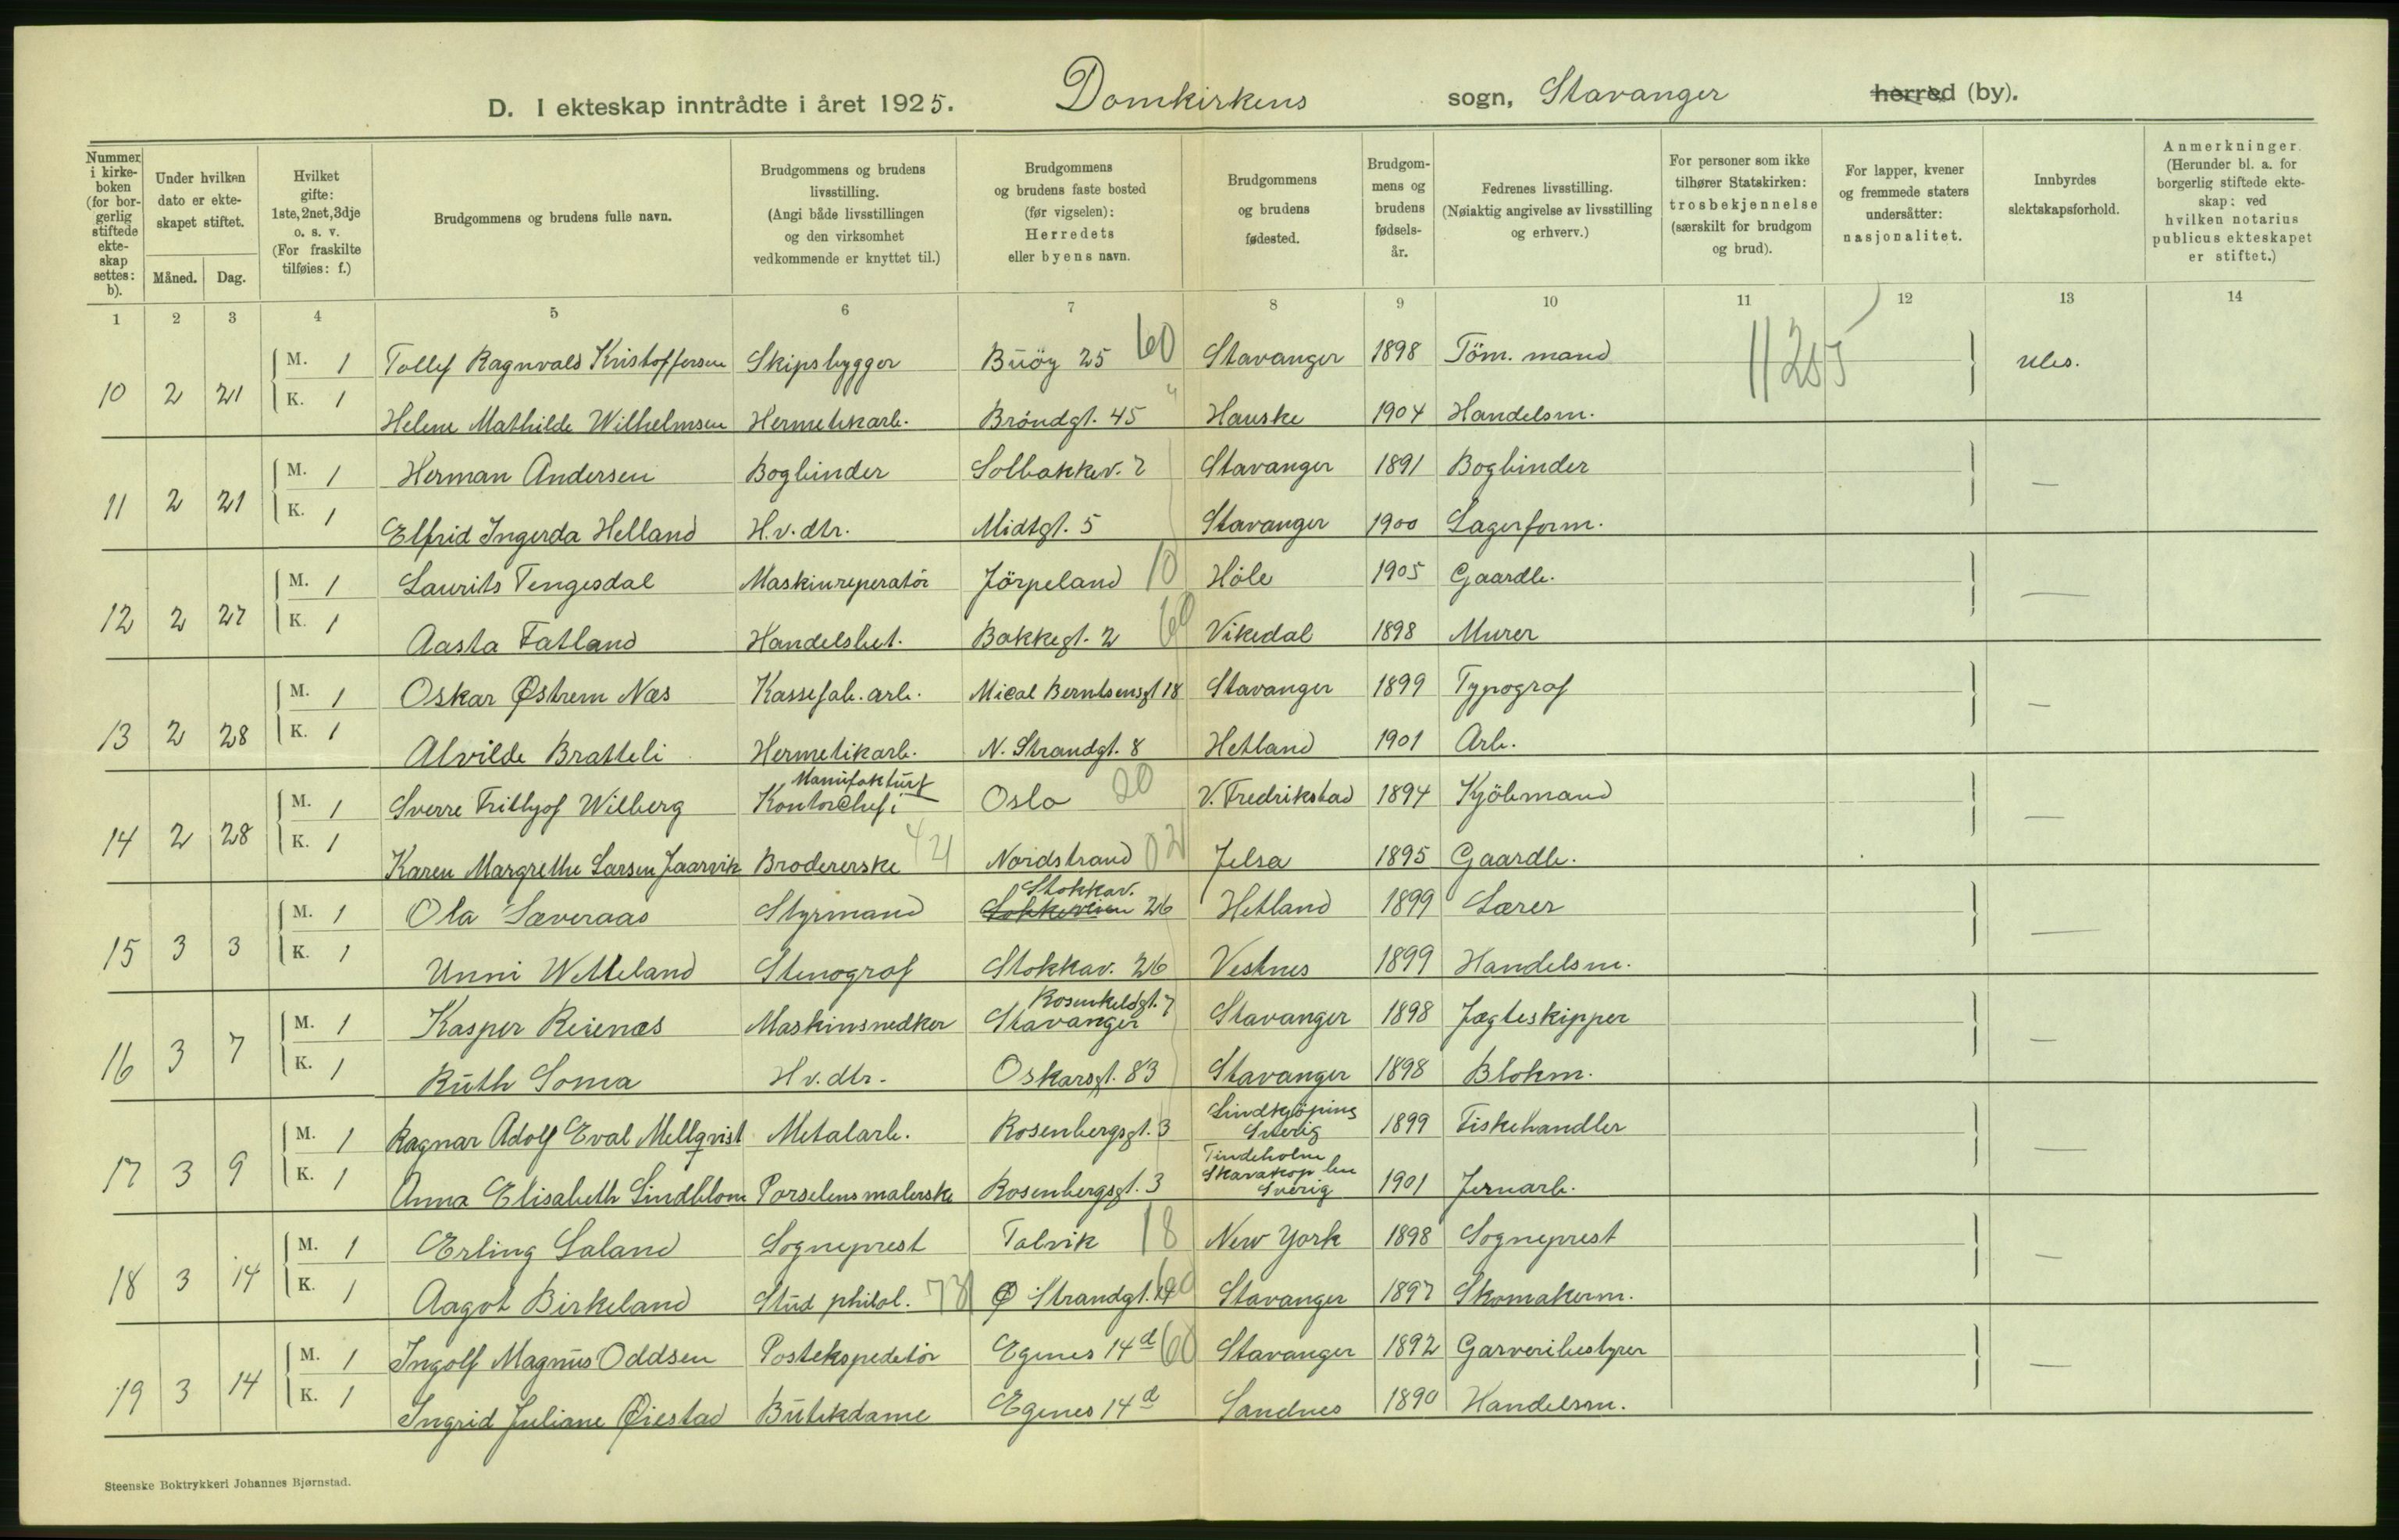 D. I ekteskap inntrådte i året 1925. Domkirkens sogn, Stavanger herred (by).
Nummer i kirkeboken (for borgerlig stiftede ekteskap settes: b).
Under hvilken dato er ekteskapet stiftet.
Måned. Dag.
Hvilket gifte: 1ste, 2net, 3dje o. s. v. (For fraskilte tilføies: f.)
Brudgommens og brudens fulle navn.
Brudgommens og brudens livsstilling. (Angi både livsstillingen og den virksomhet vedkommende er knyttet til.)
Brudgommens og brudens faste bosted (før vigselen): Herredets eller byens navn.
Brudgommens og brudens fødested.
Brudgommens og brudens fødselsår.
Fedrenes livsstilling. (Nøiaktig angivelse av livsstilling og erhverv.)
For personer som ikke tilhører Statskirken: trosbekjennelse (særskilt for brudgom og brud).
For lapper, kvener og fremmede staters undersåtter: nasjonalitet.
Innbyrdes slektskapsforhold.
Anmerkninger. (Herunder bl. a. for borgerlig stiftede ekteskap: ved hvilken notarius publicus ekteskapet er stiftet.)
1 2 3 4 5 6 7 8 9 10 11 12 13 14
10 2 21 M. 1 Tollef Ragnvald Kristoffersen Skipsbygger Buöy 25 60 Stavanger 1898 Töm. mand Ubes.
K. 1 Helene Mathilde Wilhelmsen Hermetikarb. Bröndgt. 45 Hauske 1904 Handelsm.
11 2 21 M. 1 Herman Andersen Bogbinder Solbakkev. 2 Stavanger 1891 Bogbinder —
K. 1 Elfrid Ingerda Helland H.v.dtr. Midtgt. 5 Stavanger 1900 Lagerform.
12 2 27 M. 1 Laurits Tengesdal Maskinreperatör Jörpeland 10 Höle 1905 Gaardb. —
K. 1 Aasta Fatland Handelsbet. Bakkegt. 2 60 Vikedal 1898 Murer
13 2 28 M. 1 Oskar Østrem Næs Kassefab. arb. Mical Berntsensgt 18 Stavanger 1899 Typograf —
K. 1 Alvilde Bratteli Hermetikarb. N. Strandgt. 8 Hetland 1901 Arb.
14 2 28 M. 1 Sverre Frithjof Wilberg Kontorchef i Manufakturf Oslo 20 V. Fredrikstad 1894 Kjöbmand —
K. 1 Karen Margrethe Larsen Jaarvik Brodererske Nordstrand 02 Jelsa 1895 Gaardb.
15 3 3 M. 1 Ola Sæveraas Styrmand Stokkav. 26 Hetland 1899 Lærer —
K. 1 Unni Wetteland Stenograf Stokkav. 26 Vestnes 1899 Handelsm.
16 3 7 M. 1 Kasper Reienæs Maskinsnedker Rosenkildgt. 7 Stavanger Stavanger 1898 Jægteskipper —
K. 1 Ruth Soma H.v.dtr. Oskarsgt. 83 Stavanger 1898 Blokm.
17 3 9 M. 1 Ragnar Adolf Eval Mellqvist Metalarb. Rosenbergsgt. 3 Lindkjöping Sverig 1899 Fiskehandler —
K. 1 Anna Elisabeth Lindblom Porselensmalerske Rosenbergsgt. 3 Tindeholm len Sverig 1901 Jernarb.
18 3 14 M. 1 Erling Saland Sogneprest Talvik 18 New York 1898 Sogneprest —
K. 1 Aagot Birkeland Stud philol. Ø Strandgt. Stavanger 1897 Skomakerm.
19 3 14 M. 1 Ingolf Magnus Oddsen Postekspeditör Egenes 14d 60 Stavanger 1892 Garveribestyrer —
K. 1 Ingrid Juliane Øiestad Butikdame Egenes 14d Sandnes 1890 Handelsm.
Steenske Boktrykkeri Johannes Bjørnstad.